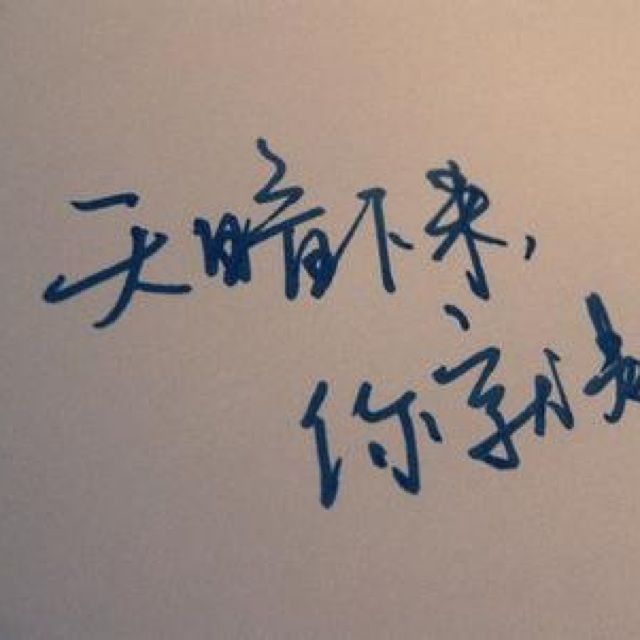 天暗下来，
你就